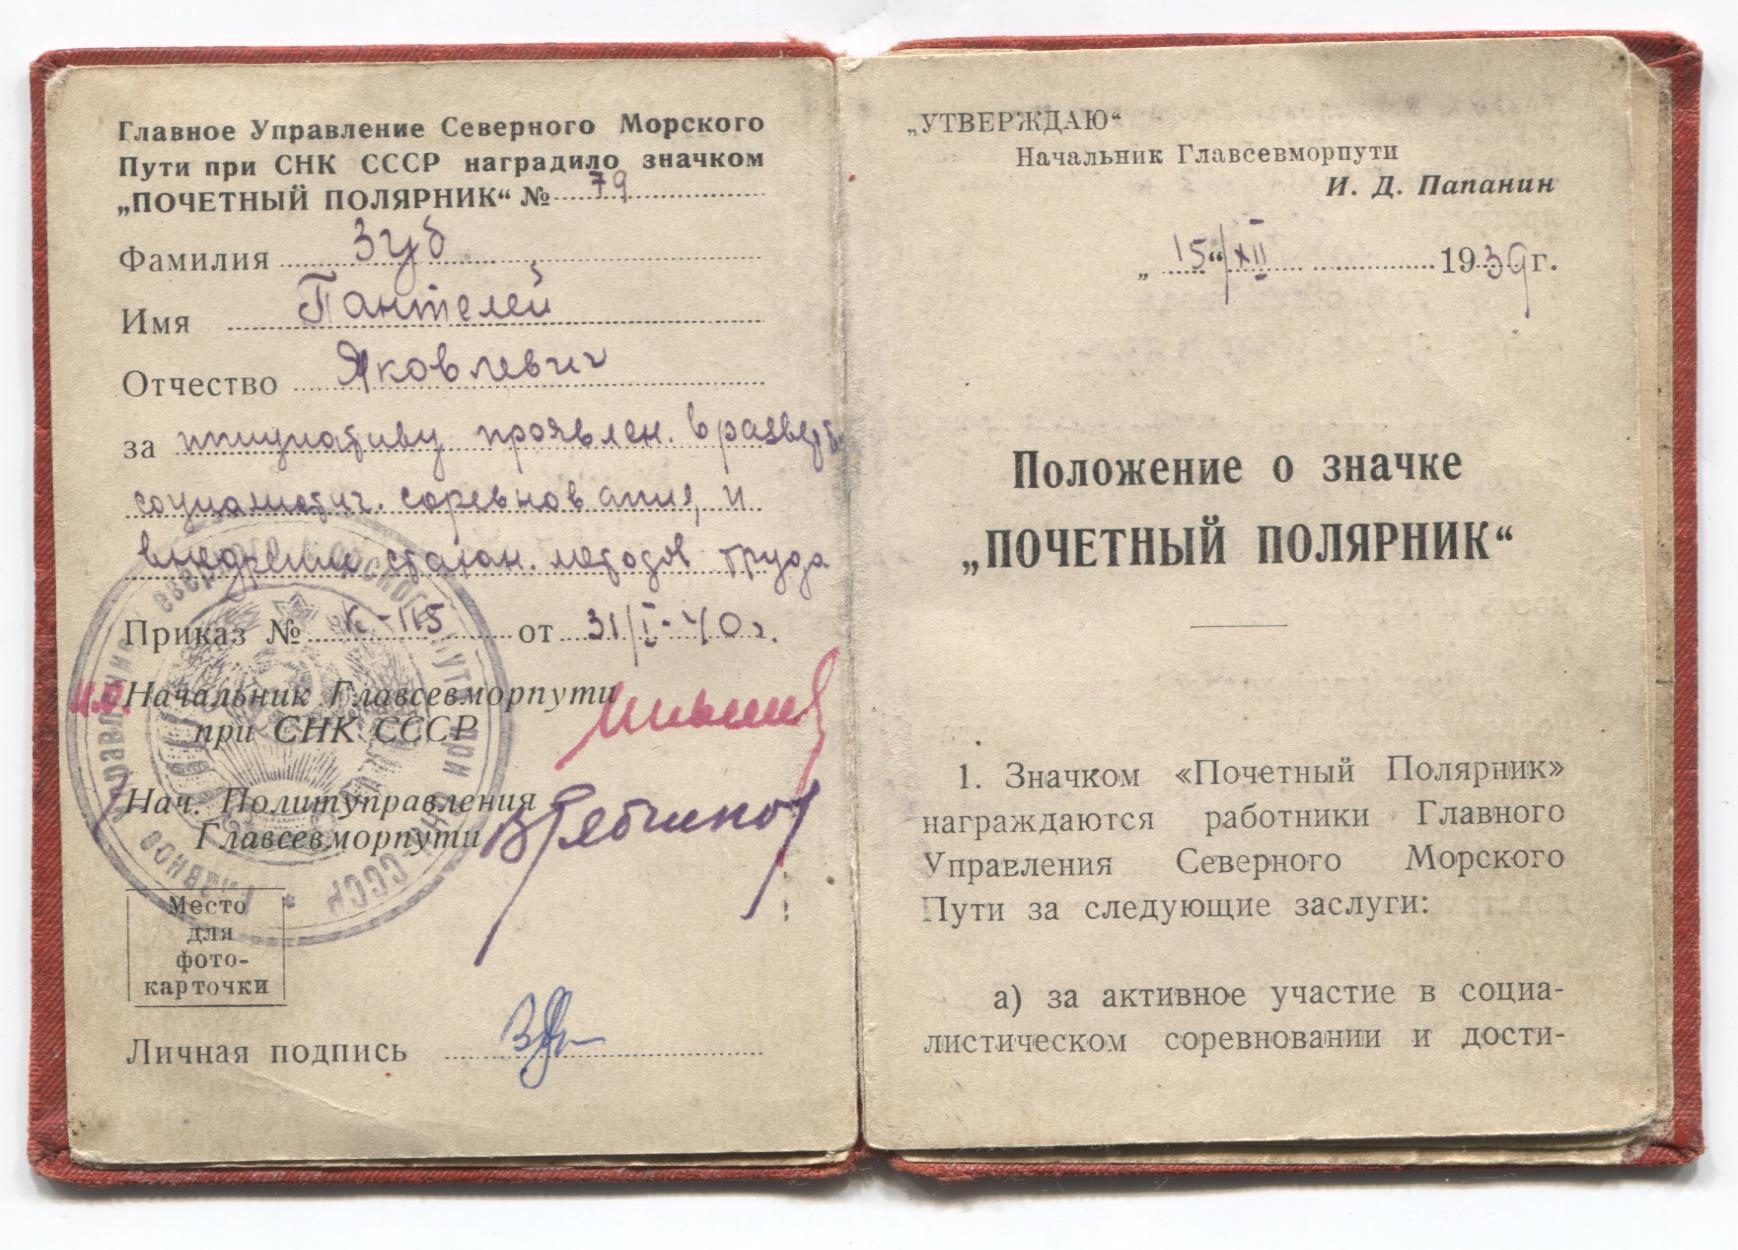 Главное Управление Северного Морского
Пути при СНК СССР наградило значком
„ПОЧЕТНЫЙ ПОЛЯРНИК“ № 79
Фамилия Зуб
Имя Пантелей
Отчество Яковлевич
за инициативу проявлен. в разверт.
социалистич. соревнования, и
внедрение стахан. методов труда
Приказ № К-115 от 31/I-40 г.
И.О. Начальник Главсевморпути
при СНК СССР
Нач. Политуправления
Главсевморпути
Место
для
фото-
карточки
Личная подпись
„УТВЕРЖДАЮ“
Начальник Главсевморпути
И. Д. Папанин
„15“/XII 1939 г.
Положение о значке
„ПОЧЕТНЫЙ ПОЛЯРНИК“
1. Значком «Почетный Полярник»
награждаются работники Главного
Управления Северного Морского
Пути за следующие заслуги:
а) за активное участие в социа-
листическом соревновании и дости-